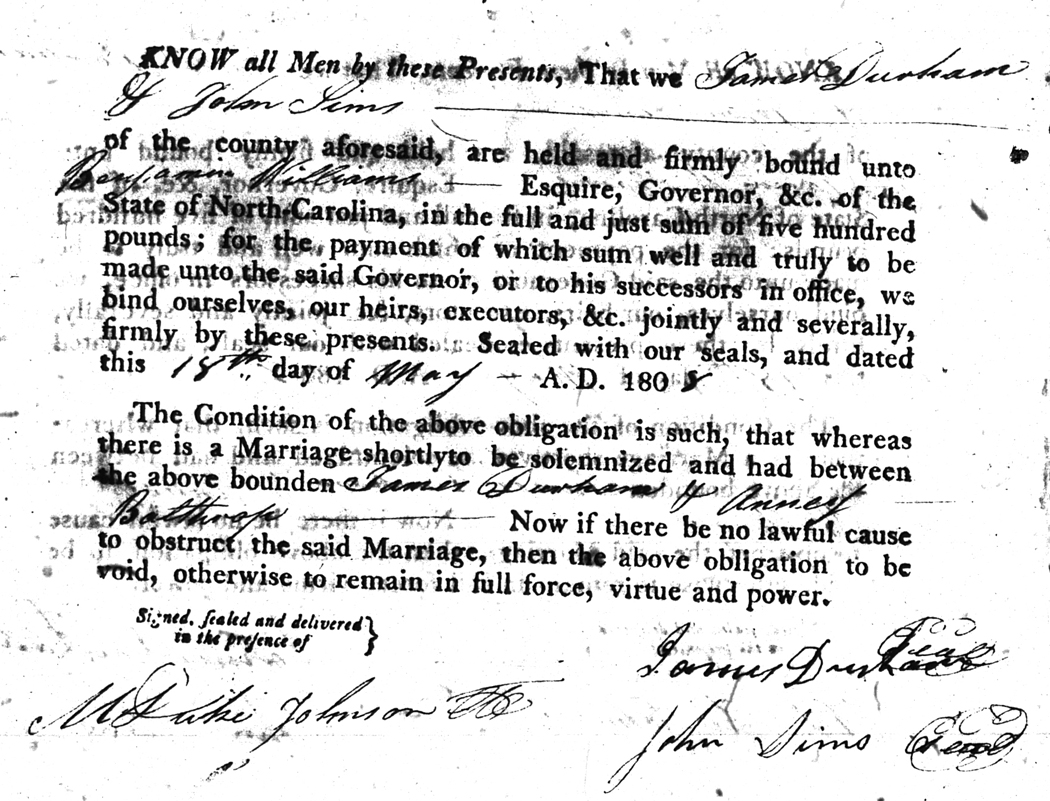 KNOW all Men by these Presents, That we James Durham
& John Sims
of the county aforesaid, are held and firmly bound unto
Benjamin Williams Esquire, Governor, &c. of the
State of North-Carolina, in the full and just sum of five hundred
pounds; for the payment of which sum well and truly to be
made unto the said Governor, or to his successors in office, we
bind ourselves, our heirs, executors, &c. jointly and severally,
firmly by these presents. Sealed with our seals, and dated
this 18th day of May A. D. 1808
The Condition of the above obligation is such, that whereas
there is a Marriage shortly to be solemnized and had between
the above bounden James Durham & Anney
Balthrop Now if there be no lawful cause
to obstruct the said Marriage, then the above obligation to be
void, otherwise to remain in full force, virtue and power.
Signed, sealed and delivered
in the presence of
James Durham Seal
M Duke Johnson
John Sims Seal